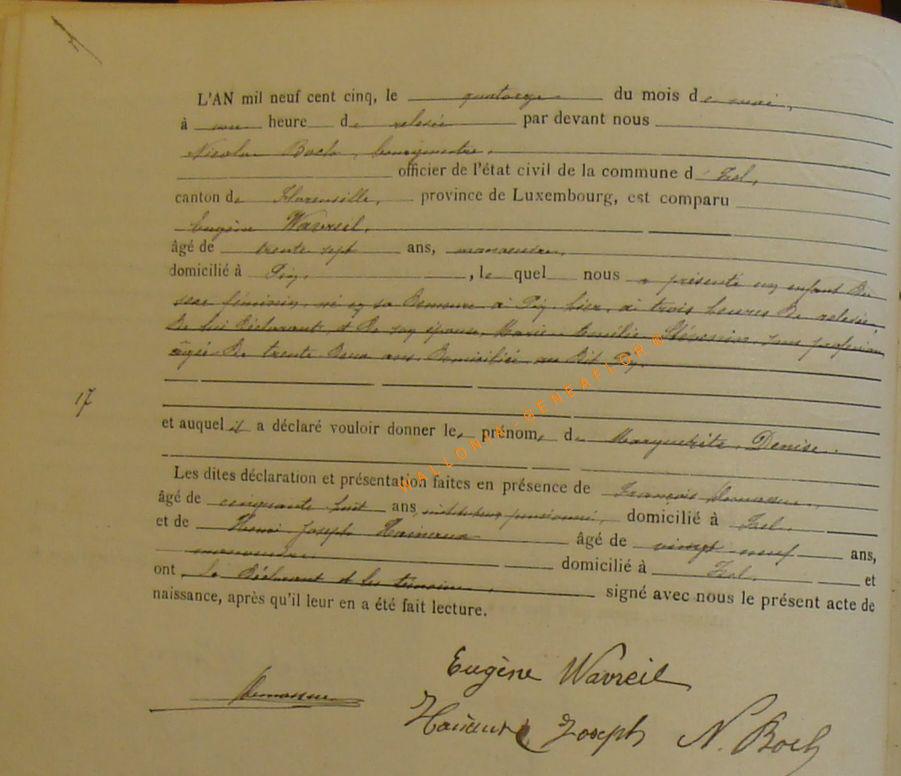 L'AN mil neuf cent cinq, le quatorze du mois de mai,
à une heure de relevée par devant nous
Nicolas Boch, bourgmestre,
officier de l'état civil de la commune d' Izel,
canton de Florenville, province de Luxembourg, est comparu
Eugène Wavreil,
âgé de trente sept ans, manoeuvre,
domicilié à Pin, , le quel nous a présenté un enfant du
sexe féminin, né en sa demeure à Pin, hier, à trois heures de relevée
de lui déclarant et de son épouse, Marie Amélie sans profession
âgée de trente deux ans, domiciliée au dit Pin.
17
et auquel il a déclaré vouloir donner les prénoms de Marguerite, Denise.
Les dites déclaration et présentation faites en présence de François
âgé de cinquante huit ans instituteur pensionné, domicilié à Izel.
et de Henri Joseph âgé de vingt neuf ans,
manoeuvre domicilié à Izel. et
ont le déclarant et les témoins, signé avec nous le présent acte de
naissance, après qu'il leur en a été fait lecture.
Eugène Wavreil
Joseph N. Boch
WALLONIA GENEAFLOR®